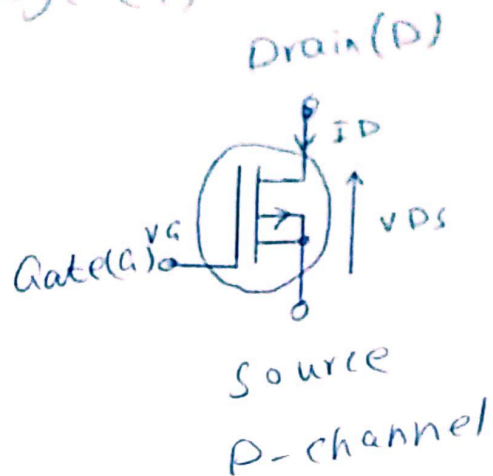 Drain(D)
ID
VDS
VG
Gate(G)
Source
P-channel